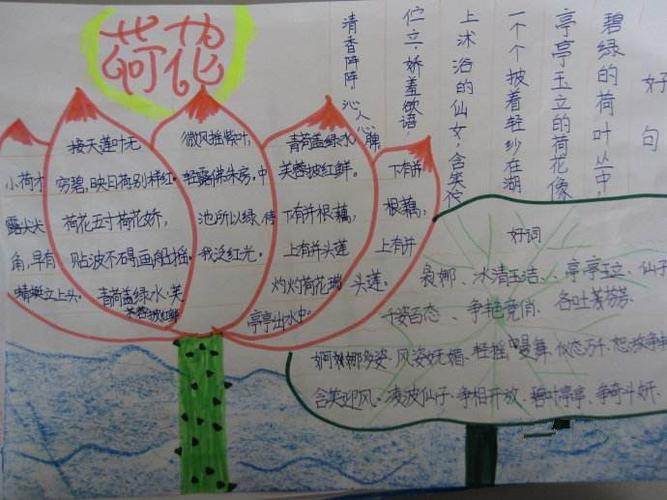 荷花
好句
碧绿的荷叶丛中,
亭亭玉立的荷花像
一个个披着轻纱在湖
上沐浴的仙女,含笑
伫立,娇羞欲语,
清香阵阵,沁人心脾
小荷才
露尖尖
角,早有
蜻蜓立上头。
接天莲叶无
穷碧,映日荷别样红。
荷花五寸荷花娇,
贴波不碍画船摇。
青荷盖绿水,芙
蓉披红鲜
微风摇紫叶,
轻露拂朱房,中
池所以绿,待
我泛红光。
青荷盖绿水
芙蓉披红鲜。
下有并根藕,
上有并头莲
灼灼荷花瑞
亭亭出水中。
下有并
根藕,
上有并
头莲。
好词
袅娜、冰清玉洁、亭亭玉立、仙子
千姿百态、争艳竞俏、各吐芬芳、
婀娜多姿、风姿妩媚、轻摇曼舞、仪态万千、
含笑迎风、凌波仙子、争相开放、碧叶亭亭、争奇斗妍、